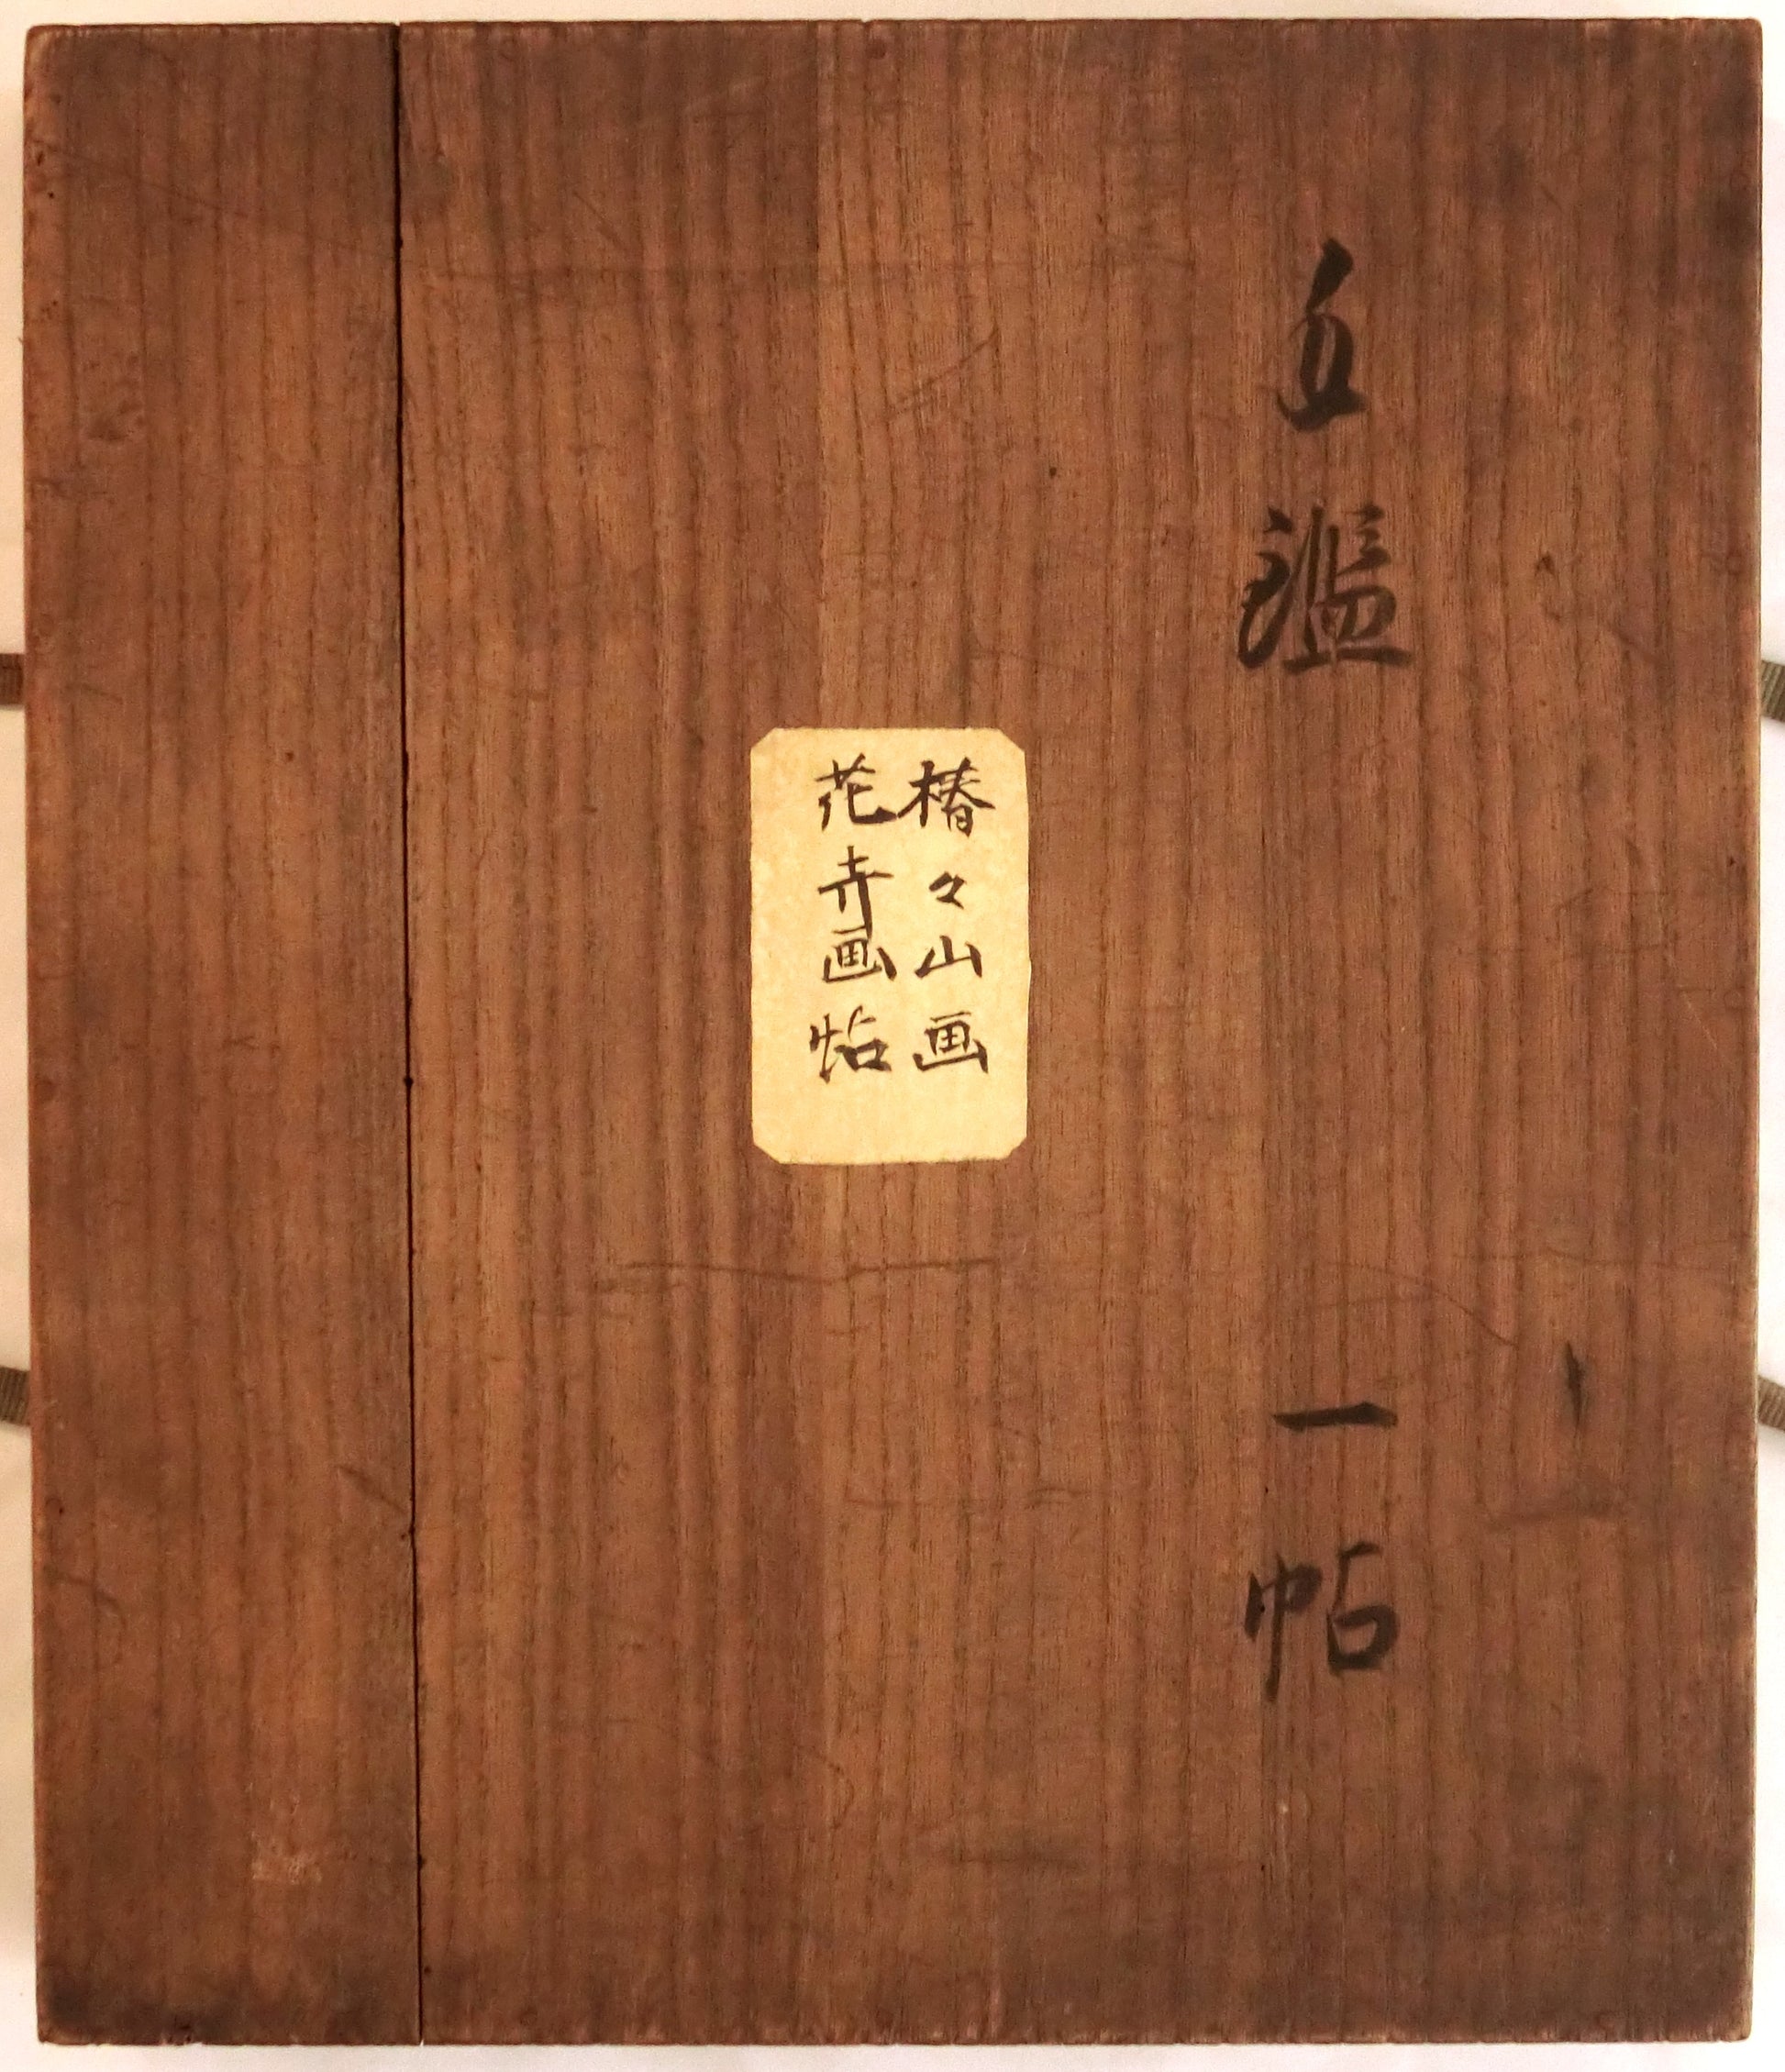 鑑 一帖
椿々山画
花卉画帖